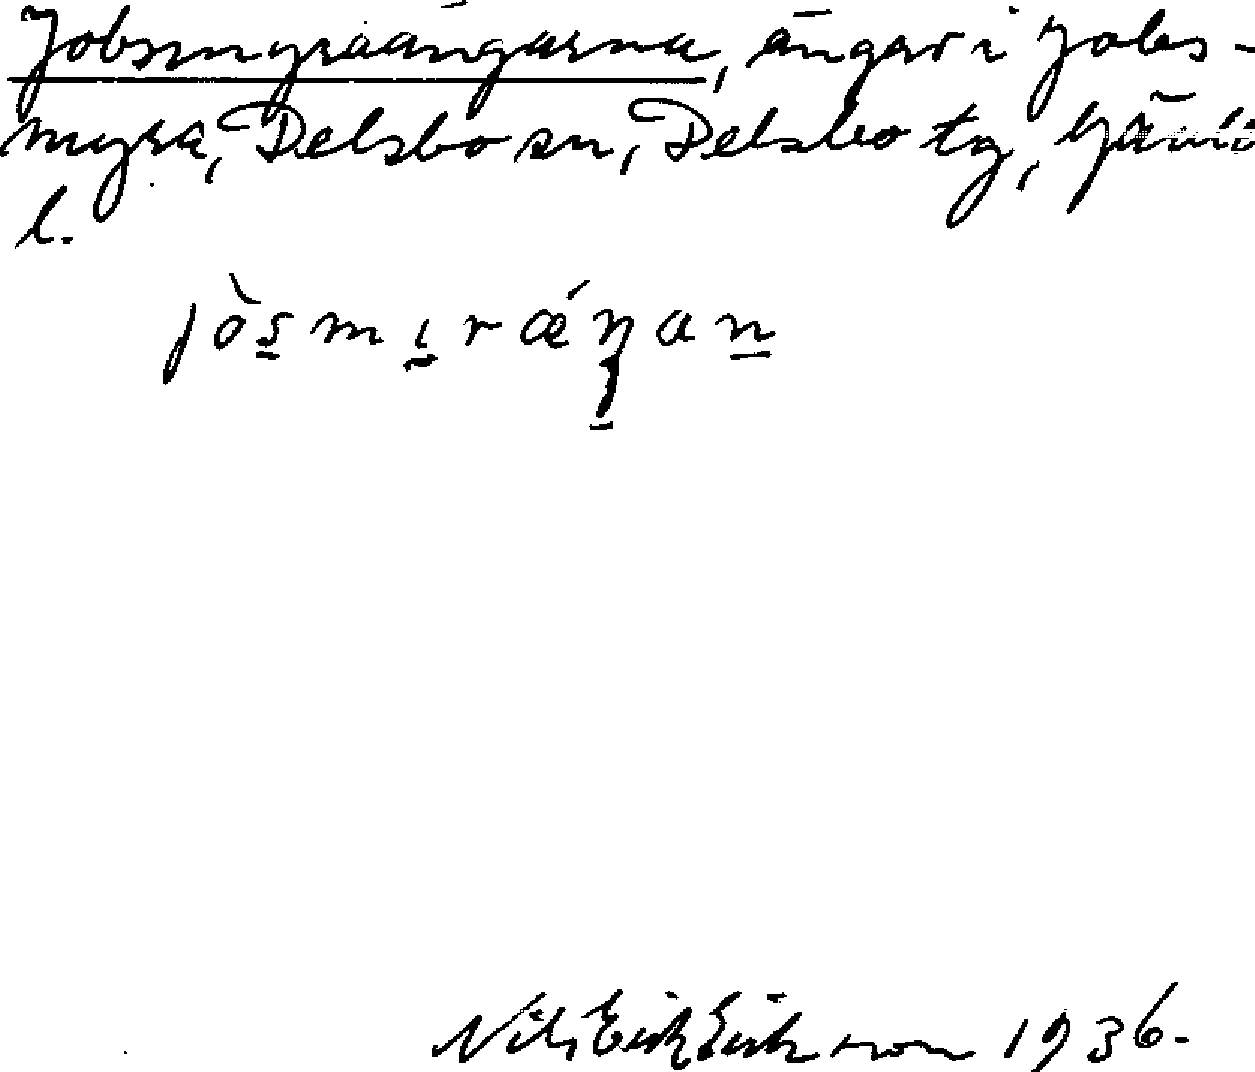 Jobsmyraängarna, ängar i Jobs-
myra, Delsbo sn, Delsbo tg, Gävleb
l.
jòsmırǽŋan
Nils Erik Eriksson 1936.